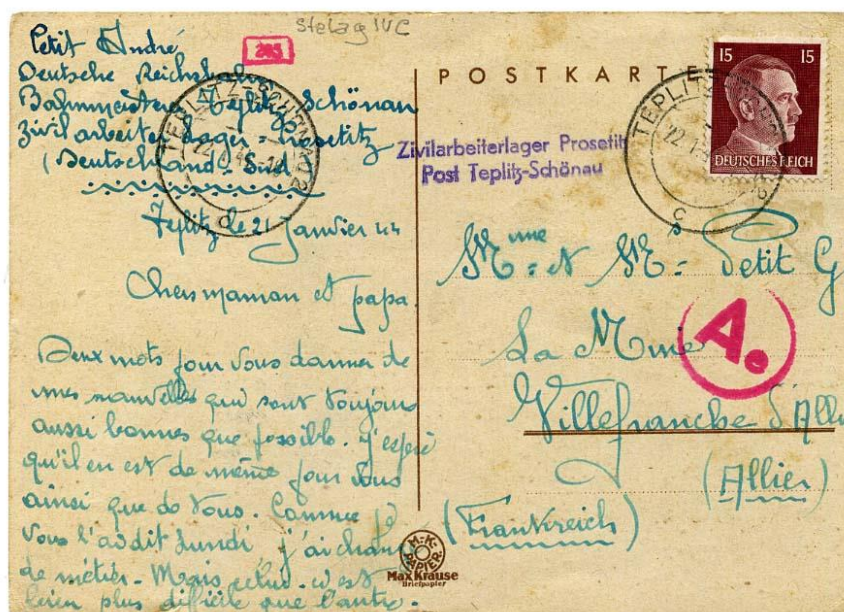 Stalag IVC
Petit André
Deutsche Reichsbahn
Bahnmeisterei Teplitz Schönau
Zivilarbeiter Lager = Prosetitz
(Deutschland - Süd)
Teplitz le 21 Janvier 44
Chers maman et papa.
Deux mots pour vous donner de
mes nouvelles qui sont toujours
aussi bonnes que possible. J'espère
qu'il en est de même pour vous
ainsi que de tous. Comme je
vous l'ai dit Lundi j'ai changé
de métier. Mais celui-ci est
bien plus difficile que l'autre.
POSTKARTE
15 15
DEUTSCHES REICH
TEPLITZ-SCHÖNAU 2
22.1.
c
TEPLITZ-
22.1.
c
Zivilarbeiterlager Prosetitz
Post Teplitz-Schönau
Mme et Mr Petit G
La Mine
Villefranche d'Alli
(Allier)
(Frankreich)
A.
M.-K.
PAPIER
Max Krause
Briefpapier